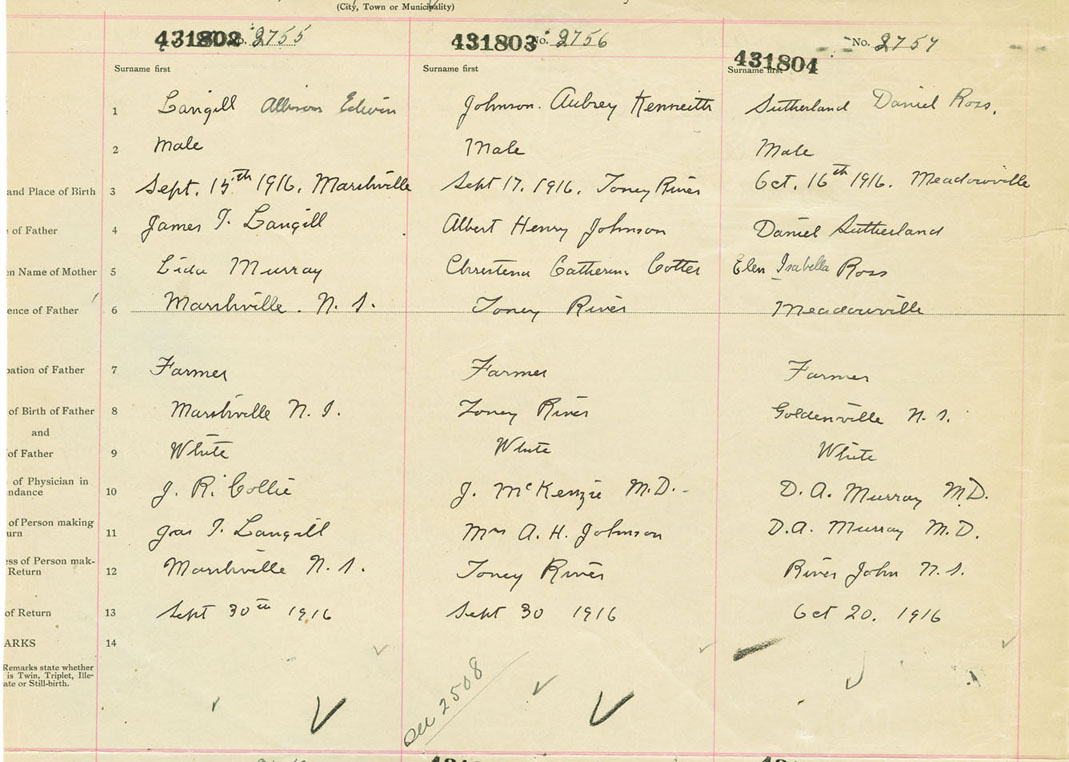 (City, Town or Municipality)
431802 No. 2755 431803 No. 2756 431804 No. 2757
Surname first Surname first Surname first
1 Langill Allison Edwin Johnson. Aubrey Kenneith Sutherland Daniel Ross.
2 Male Male Male
and Place of Birth 3 Sept. 15th 1916. Marshville Sept 17. 1916. Toney River Oct. 16th 1916. Meadowville
of Father 4 James T. Langill Albert Henry Johnson Daniel Sutherland
en Name of Mother 5 Lida Murray Christena Catherine Cotter Elen Isabella Ross
ence of Father 6 Marshville. N. S. Toney River Meadowville
pation of Father 7 Farmer Farmer Farmer
of Birth of Father 8 Marshville N. S. Toney River Goldenville N. S.
and
of Father 9 White White White
of Physician in
ndance 10 J. R. Collie J. McKenzie M.D. D. A. Murray M.D.
of Person making
urn 11 Jas T. Langill Mrs A. H. Johnson D.A. Murray M.D.
ess of Person mak-
Return 12 Marshville N. S. Toney River River John N.S.
of Return 13 Sept 30th 1916 Sept 30 1916 Oct 20. 1916
ARKS 14
Remarks state whether
is Twin, Triplet, Ille-
ate or Still-birth.
2508